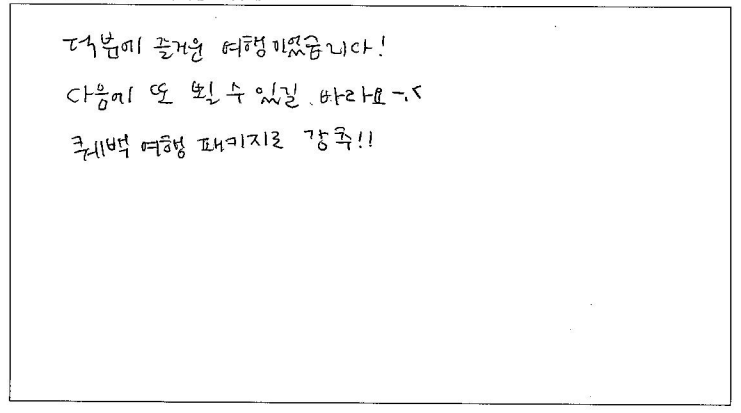 덕분에 즐거운 여행이었습니다!
다음에 또 뵐 수 있길 바라요~.<
퀘백 여행 패키지로 강추!!